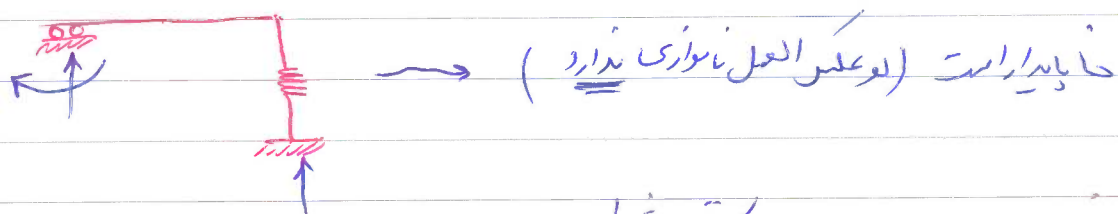 ناپایدار است (دو عکس العمل ناموازی ندارد)